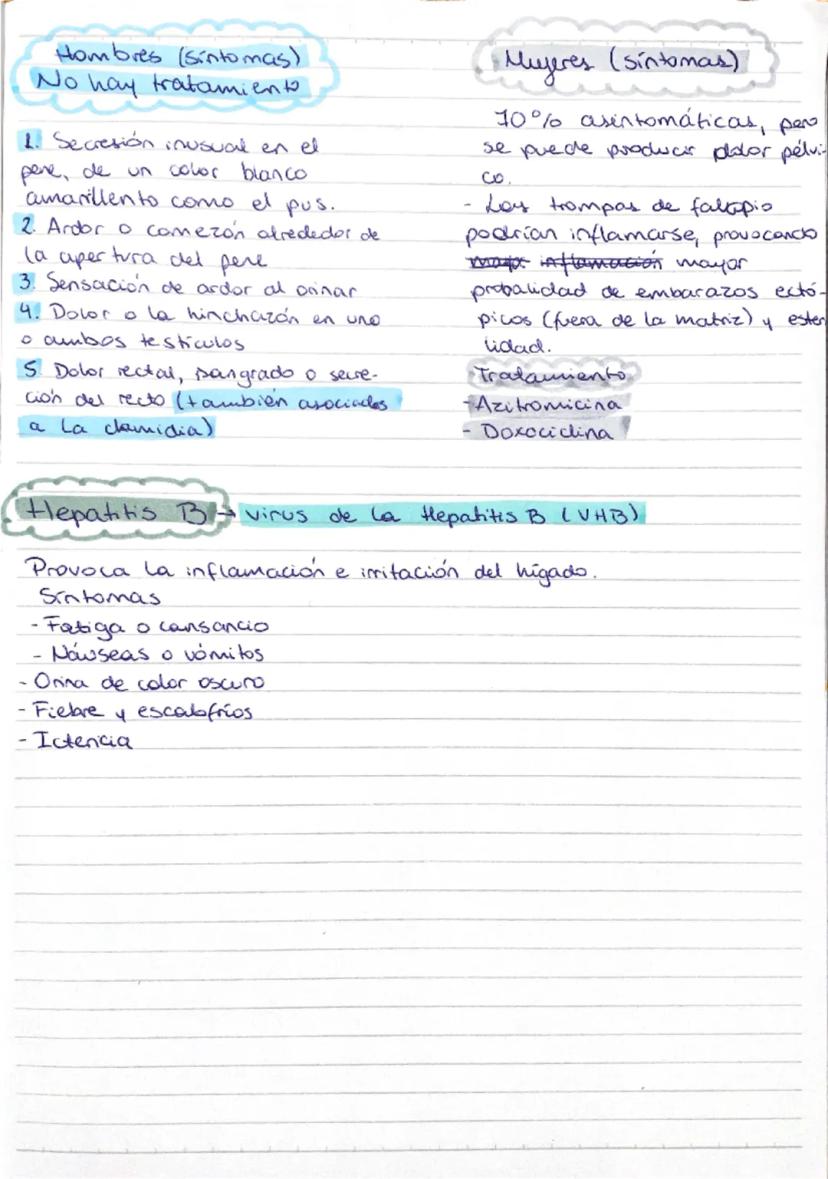 Hombres (síntomas)
No hay tratamiento
1. Secresión inusual en el
pene, de un color blanco
amarillento como el pus.
2. Ardor o comezón alrededor de
la apertura del pene
3. Sensación de ardor al orinar
4. Dolor o la hinchazón en uno
o ambos testículos
5. Dolor rectal, sangrado o secre-
ción del recto (también asociados
a la clamidia)
Mujeres (síntomas)
70% asintomáticas, pero
se puede producir dolor pélvi-
co.
- Las trompas de falopio
podrían inflamarse, provocando
inflamación mayor
probalidad de embarazos ectó-
picos (fuera de la matriz) y ester
lidad.
Tratamiento
- Azitromicina
- Doxociclina
Hepatitis B → virus de la Hepatitis B (VHB)
Provoca la inflamación e irritación del hígado.
Síntomas
- Fatiga o cansancio
- Náuseas o vómitos
- Orina de color oscuro
- Fiebre y escalofríos
- Ictericia